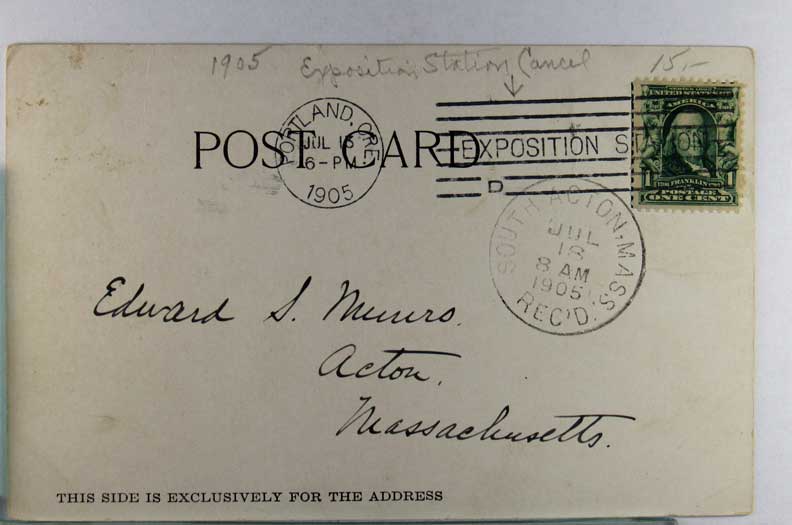 1905 Exposition Station Cancel 15.-
PORTLAND, ORE.
JUL 13
6-PM
1905
EXPOSITION STATION
D
SERIES 1902
UNITED STATES OF
AMERICA
FRANKLIN
1 POSTAGE 1
ONE CENT
POST CARD
SOUTH ACTON, MASS.
JUL
18
8 AM
1905
REC'D.
Edward S. Munro.
Acton.
Massachusetts.
THIS SIDE IS EXCLUSIVELY FOR THE ADDRESS